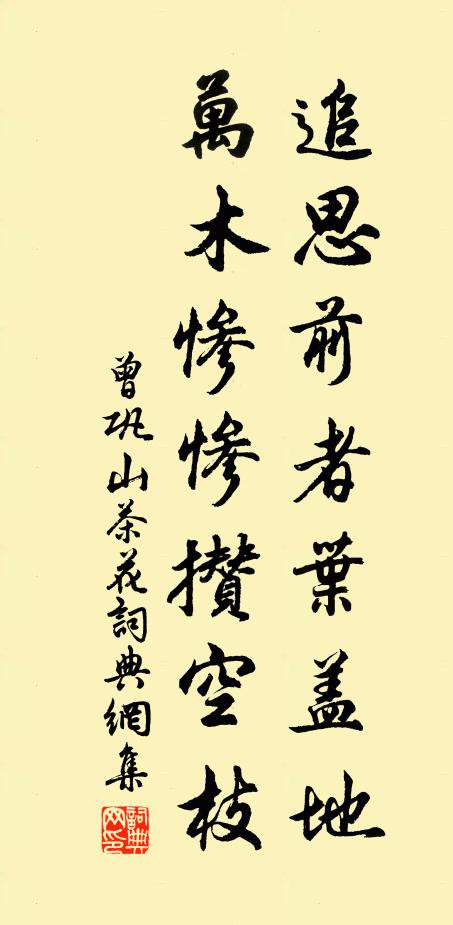 追思前者葉盖地
萬木慘慘攢空枝
曾巩山茶花詞典網集
詞典网印